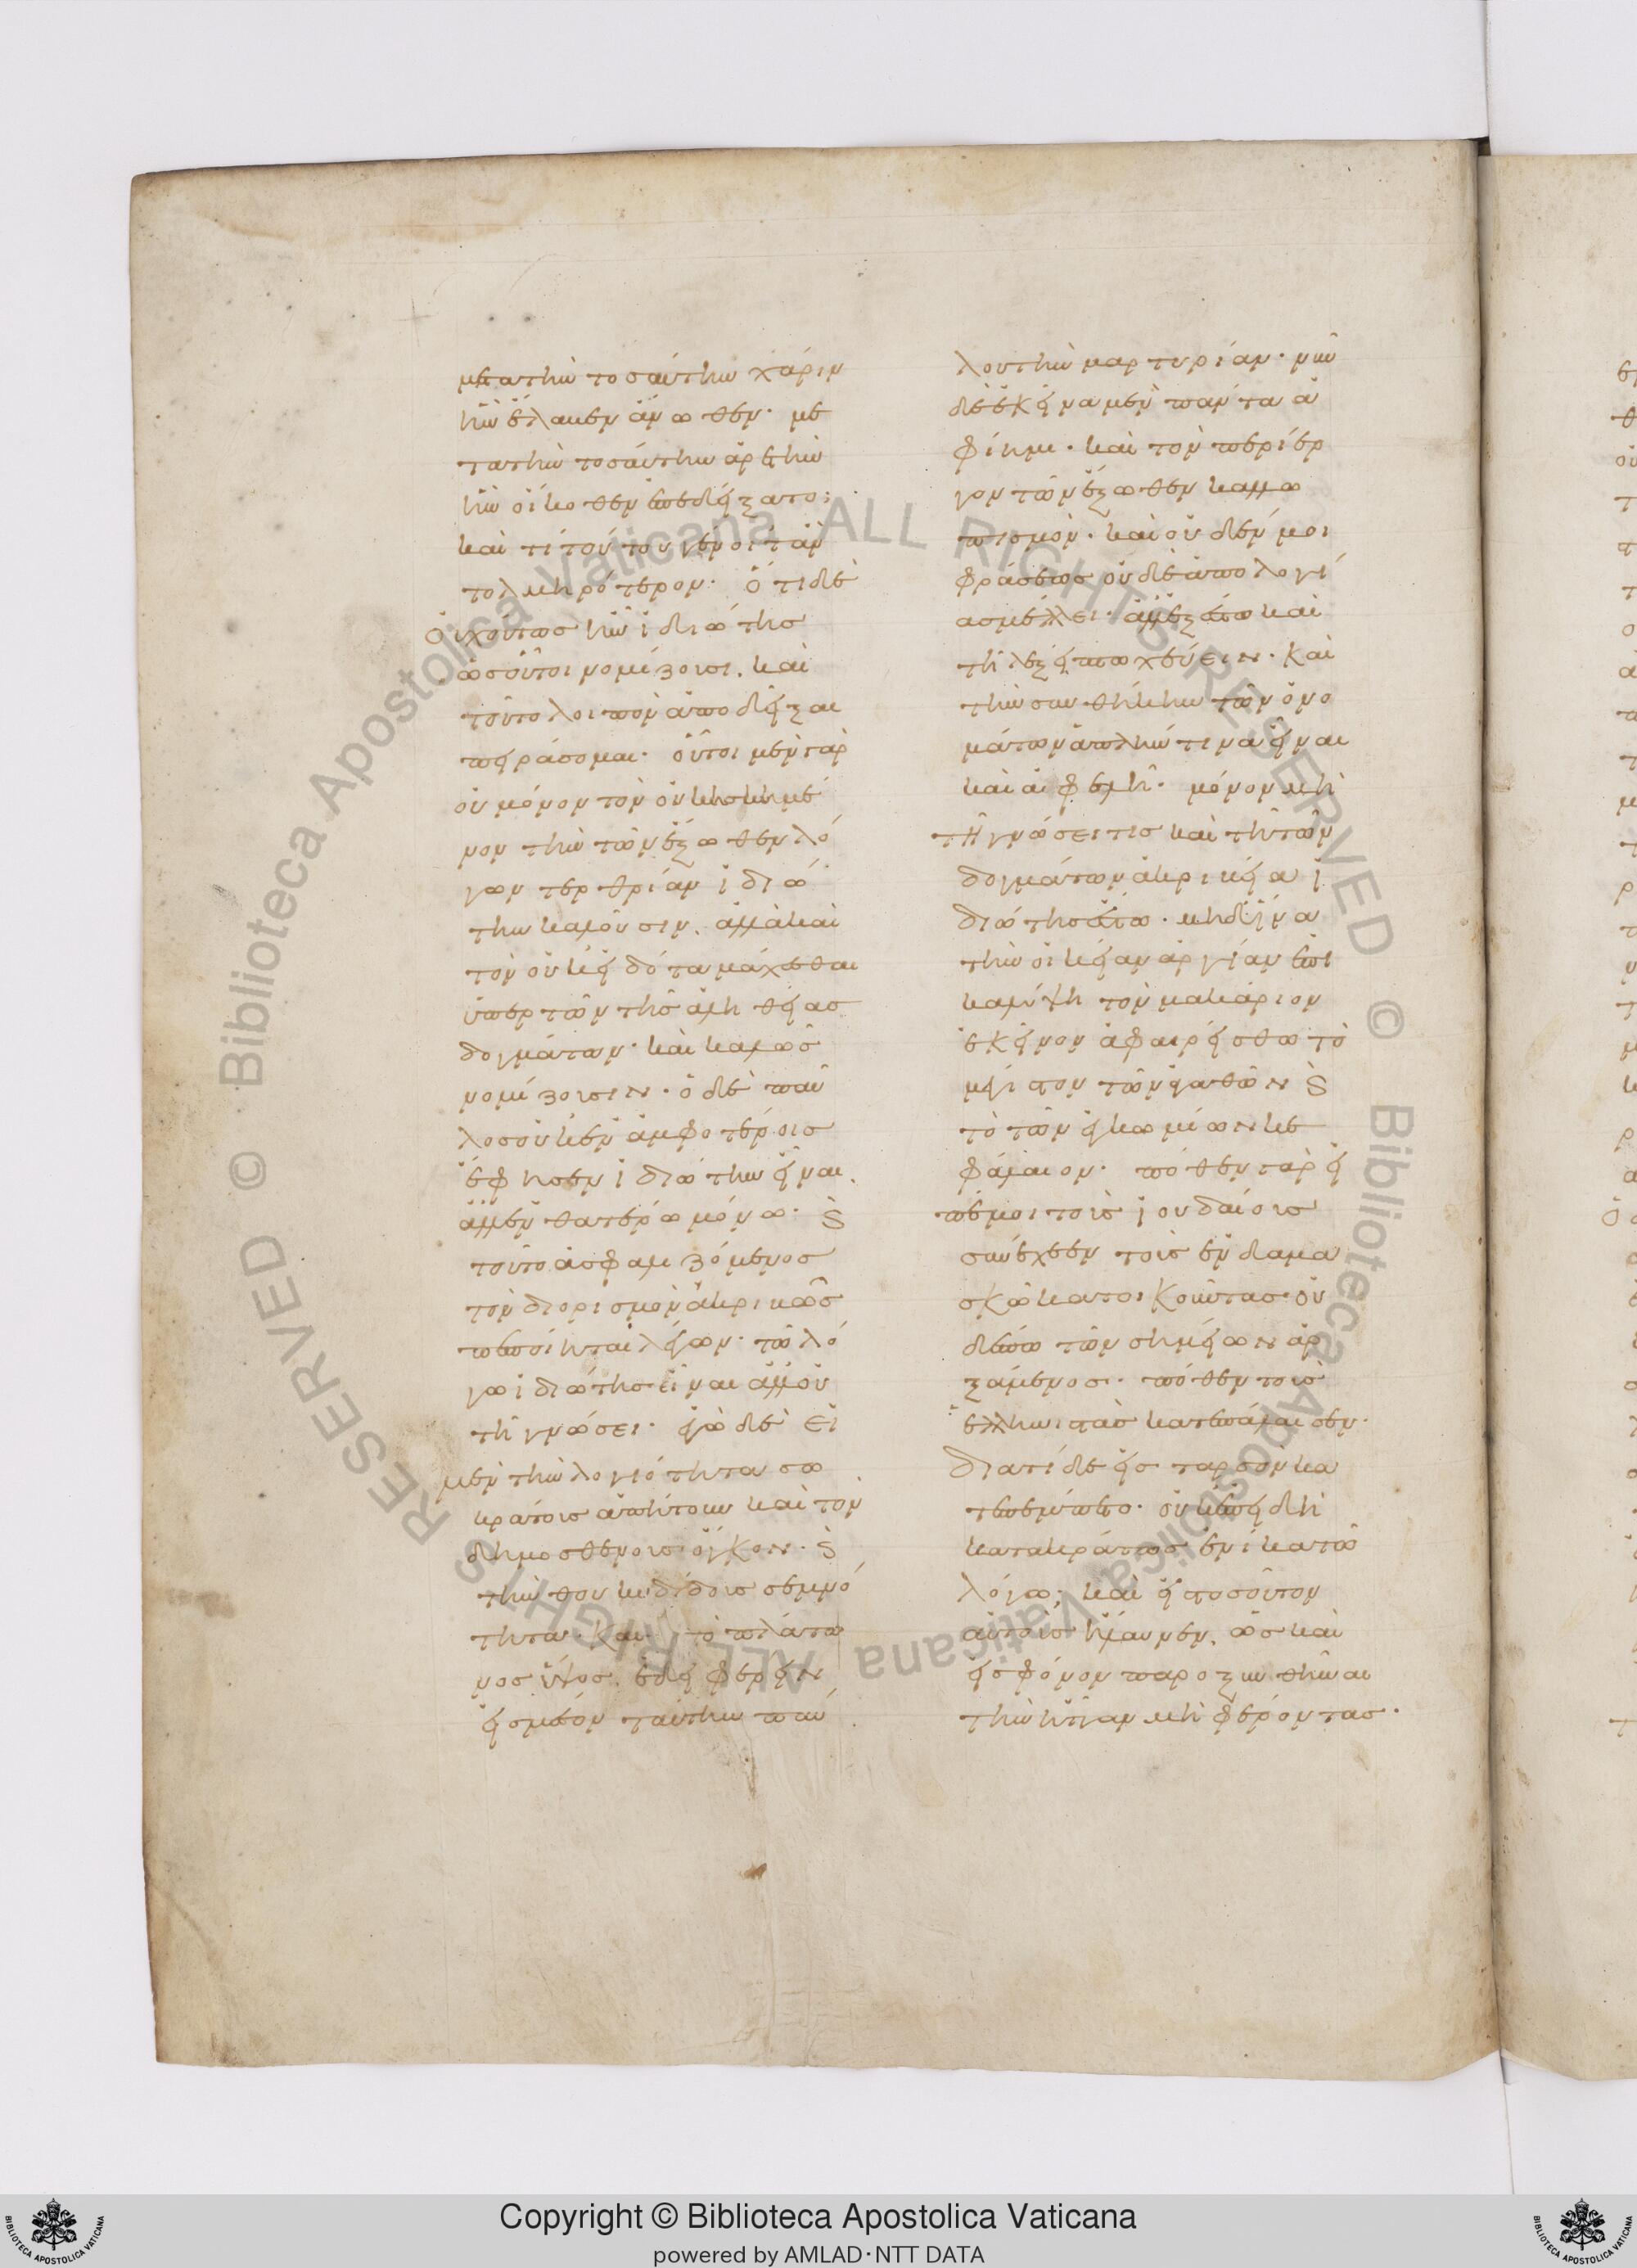 μετα τὴν τοσαύτην χάριν
ἣν ἔλαβεν ἄνωθεν· με
τὰ τὴν τοσάυτην ἀρετὴν
ἣν οἴκοθεν ἐπεδείξατο;
καὶ τί τούτου γένοιτ ἂν
τολμηρότερον· ὅτι δὲ
οὐχ οὕτως ἦν ἰδιώτης
ὡς οὗτοι νομίζουσι. καὶ
τοῦτο λοιπὸν ἀποδεῖξαι
πειράσομαι· οὗτοι μὲν γὰρ
οὐ μόνον τὸν οὐκ ἠσκημέ
νον τὴν τῶν ἔξωθεν λό
γων τερθρίαν ἰδιώ
την καλοῦσιν. ἀλλὰ καὶ
τὸν οὐκ εἰδότα μάχεσθαι
ὑπερ τῶν τῆς ἀληθείας
δογμάτων· καὶ καλῶς
νομίζουσιν. ὁ δὲ παῦ
λος οὐκ ἐν ἀμφοτέροις
ἔφησεν ἰδιώτην εἶναι.
ἀλλ ἐν θατέρω μόνω· ϗ
τοῦτο ἀσφαλιζόμενος
τὸν διορισμὸν ἀκριβῶς
πεποίηται λέγων· τῶ λό
γω ἰδιώτης εἶναι ἀλλ οὐ
τῆ γνώσει· ἐγὼ δὲ εἰ
μὲν τὴν λογιότητα σω
κράτους ἀπήτουν καὶ τὸν
δημοσθένους ὄγκον. ϗ
τὴν θουκυδίδους σεμνό
τητα. καὶ τὸ πλάτω
νος ὕψος. ἔδει φέρειν
εἰς μέσον ταύτην παύ
λου τὴν μαρτυρίαν. νῦν
δὲ ἐκεῖνα μὲν πάντα ἀ
φίημι. καὶ τὸν περίερ
γον τῶν ἔξωθεν καλλω
πισμὸν. καὶ οὐδέν μοι
φράσεως οὐδὲ ἀπολογί
ας μέλλει. ἀλλ ἐξέστω καὶ
τῆ λέξει πτωχεύειν. καὶ
τὴν συνθήκην τῶν ὀνο
μάτων ἁπλῆν τινα εἶναι
καὶ ἀφελῆ. μόνον μὴ
τῆ γνώσει τις καὶ τῆ τῶν
δογμάτων ἀκριβεία ἰ
διώτης ἔστω. μηδ ἵνα
τὴν οἰκείαν ἀργίαν ἐπι
καλύψη τὸν μακάριον
ἐκεῖνον ἀφαιρείσθω τὸ
μέγιστον τῶν ἀγαθῶν ϗ
τὸ τῶν ἐγκωμίων κε
φάλαιον. πόθεν γὰρ εἰ
πέ μοι τοὺς ἰουδαίους
συνέχεεν τοὺς ἐν δαμα
σκῶ κατοικοῦντας οὐ
δέπω τῶν σημείων ἀρ
ξάμενος. πόθεν τοὺς
ἑλληνιστὰς κατεπάλαισεν.
διατί δὲ εἰς ταρσὸν κα
τεπέμπετο. οὐκ ἐπειδὴ
κατακράτος ἐνίκα τῶ
λόγω; καὶ εἰς τοσοῦτον
αὐτοὺς ἤλαυνεν. ὡς καὶ
εἰς φόνον παροξυνθῆναι
τὴν ἧτταν μὴ φέροντας.
Copyright © Biblioteca Apostolica Vaticana
powered by AMLAD·NTT DATA